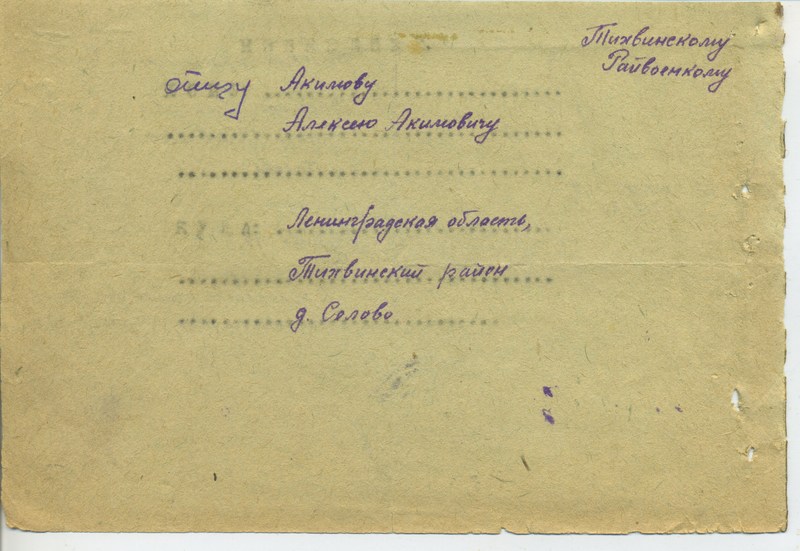 Тихвинскому
Райвоенкому
отцу Акимову
Алексею Акимовичу
Ленинградская область,
Тихвинский район
д. Селово